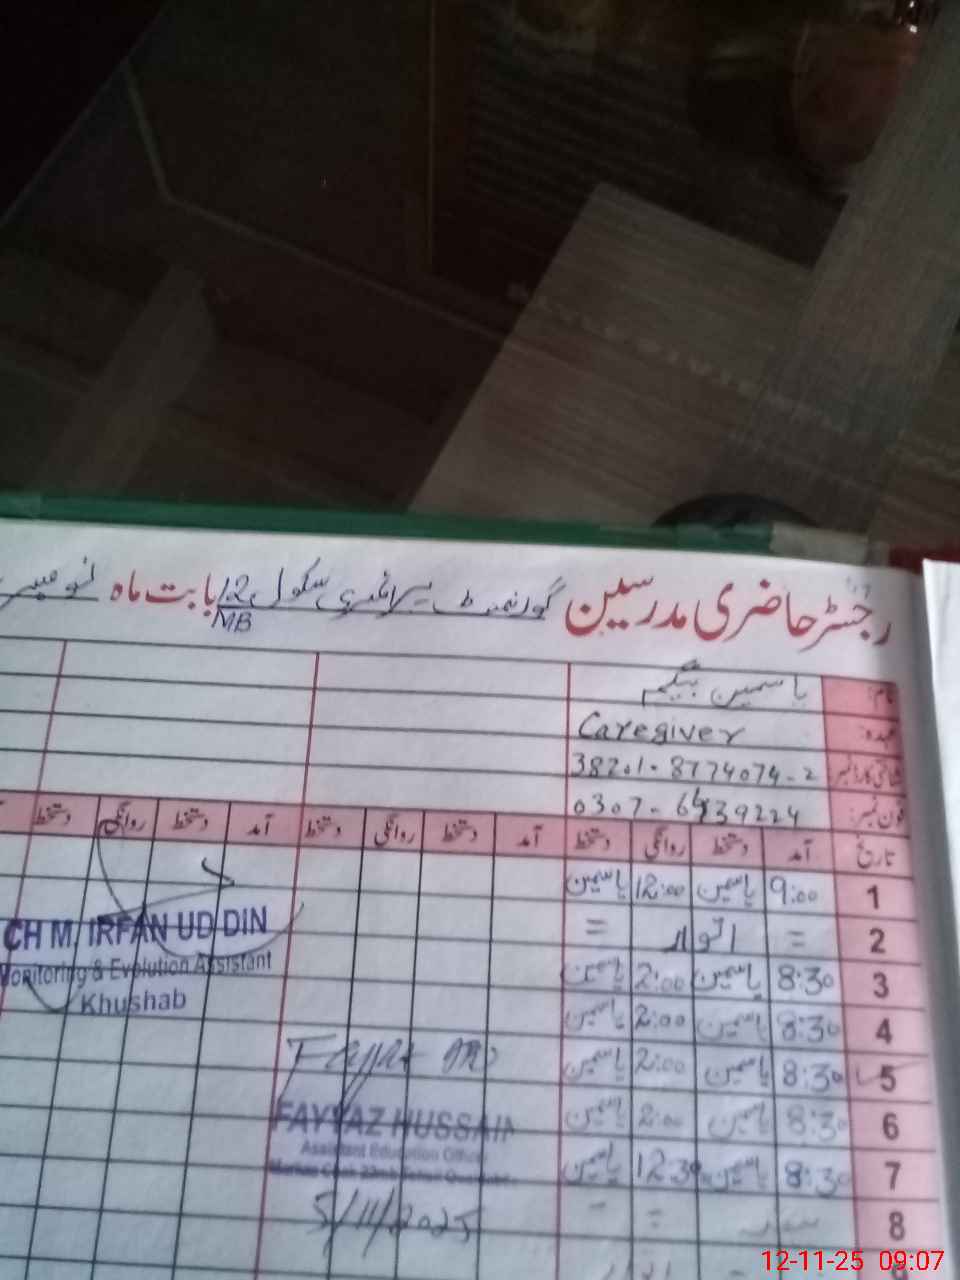 رجسٹر حاضری مدرسین گورنمنٹ پرائمری سکول 12 بابت ماہ نومبر
MB
نام: یاسمین بیگم
عہدہ: Caregiver
شناختی کارڈ نمبر: 38201-8774074-2
فون نمبر: 0307-6439224
تاریخ آمد دستخط روانگی دستخط آمد دستخط روانگی دستخط آمد دستخط روانگی دستخط
1 9:00 یاسمین 12:00 یاسمین
2 = اتوار =
3 8:30 یاسمین 2:00 یاسمین
4 8:30 یاسمین 2:00 یاسمین
5 8:30 یاسمین 2:00 یاسمین
6 8:30 یاسمین 2:00 یاسمین
7 8:30 یاسمین 12:30 یاسمین
8
CH M. IRFAN UD DIN
Monitoring & Evolution Assistant
Khushab
FAYYAZ HUSSAIN
Assistant Education Officer
5/11/2025
12-11-25 09:07